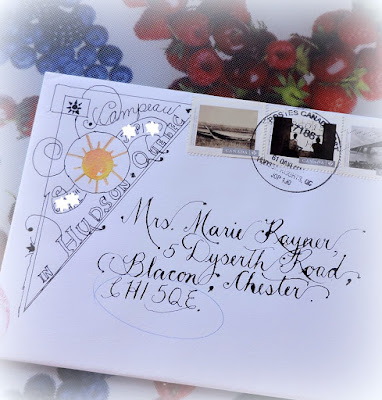 Campeau
IN HUDSON · QUEBEC
CANADA
POSTES CANADA
Mrs. Marie Rayner,
5 Dyserth Road,
Blacon, Chester.
CH1 5QE.